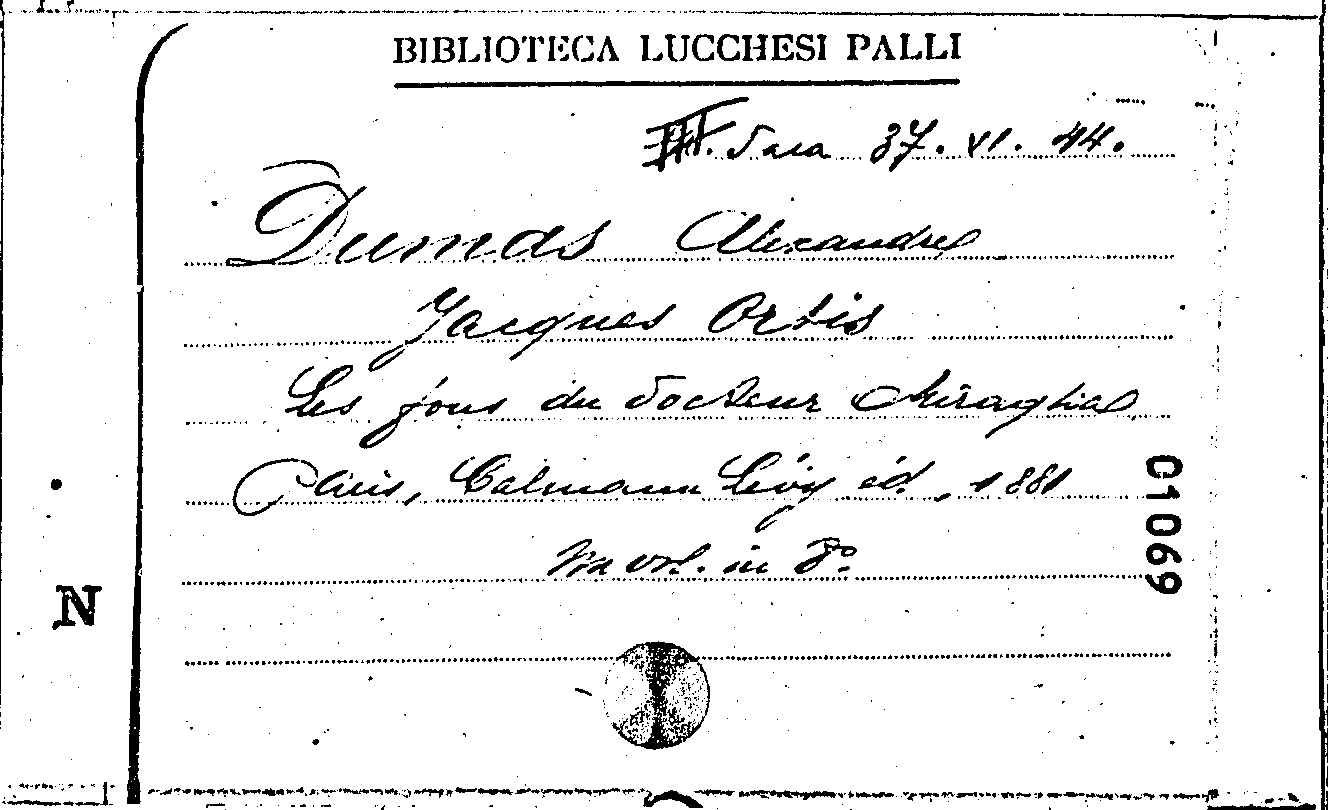 BIBLIOTECA LUCCHESI PALLI
III. Sala 37. VI. 44.
Dumas Alexandre
Jacques Ortis
Les fous du docteur Miraglia
Paris, Calmann Lévy éd., 1881
Un vol. in 8°
01069
N